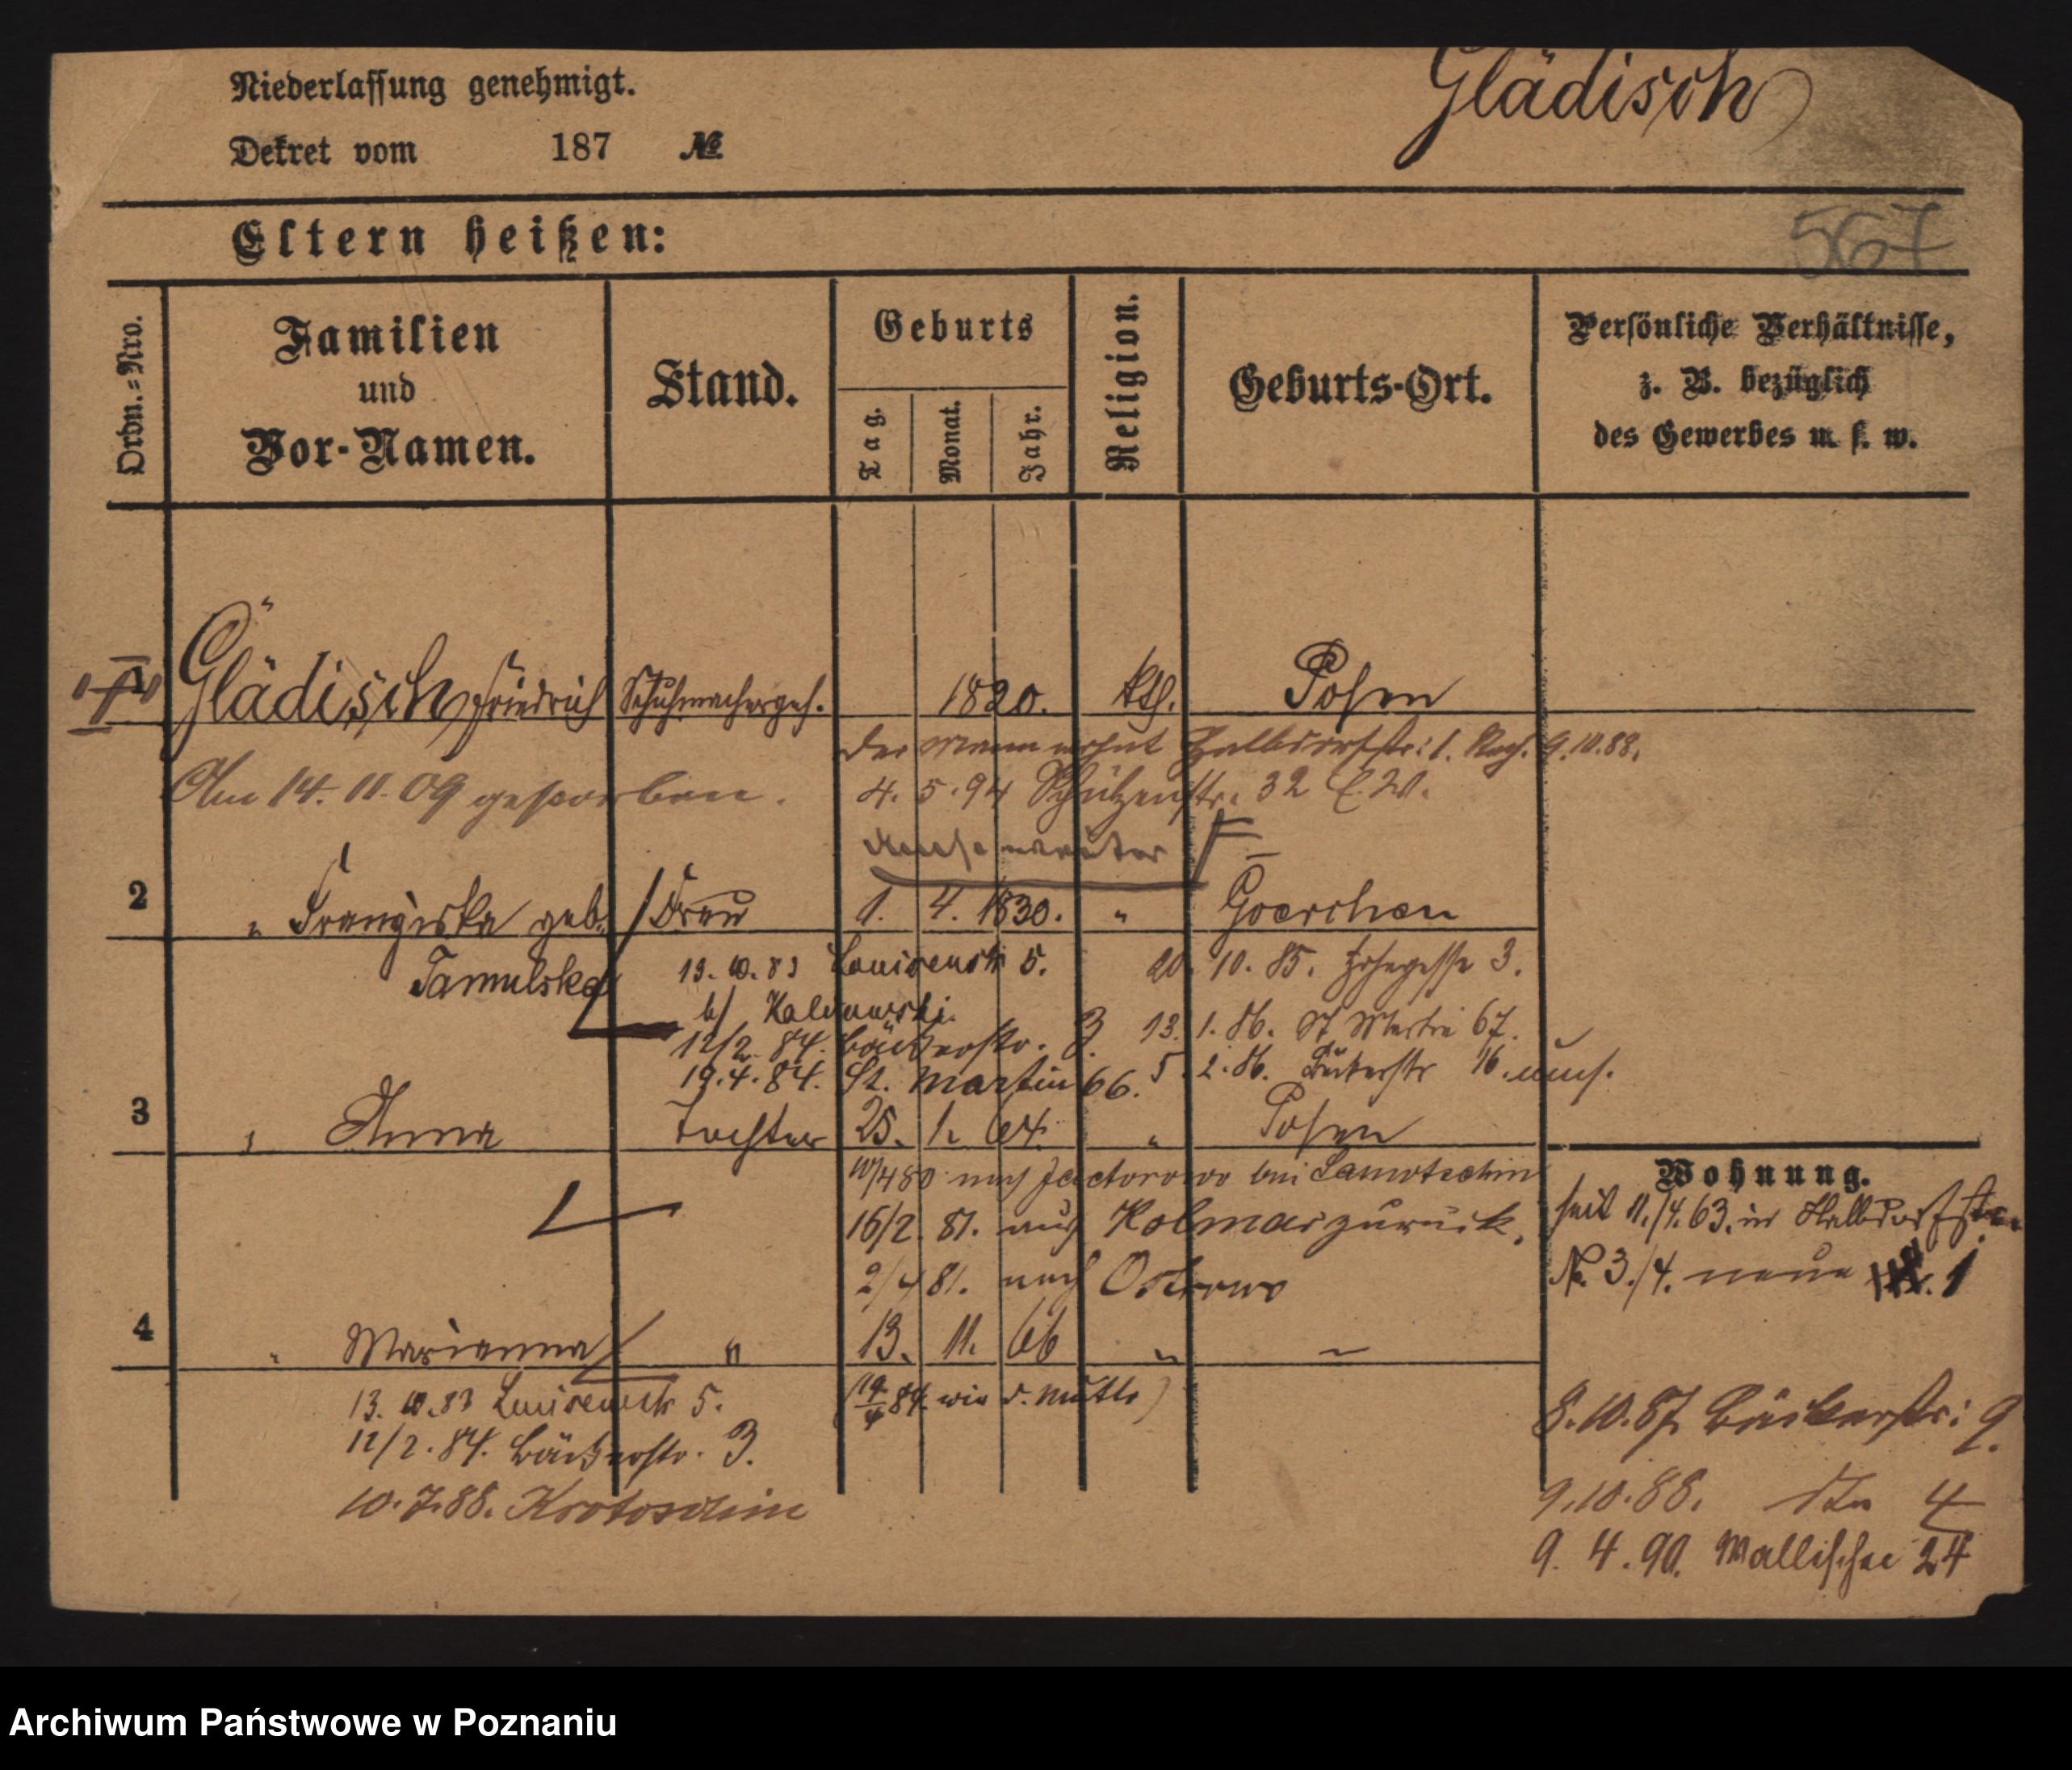 Glädisch
Niederlassung genehmigt.
Dekret vom 187 №
567
Eltern heißen:
Ordn.=Nro.
Familien
und
Vor-Namen.
Stand.
Geburts
Tag.
Monat.
Jahr.
Religion.
Geburts-Ort.
Persönliche Verhältnisse,
z. B. bezüglich
des Gewerbes u. s. w.
Glädisch Friedrich Schuhmacherges. 1820. kth. Posen
Der Mann wohnt Halbdorfstr: 1. 9.10.88.
Am 14. 11. 09 gestorben. 4. 5. 94 Schützenstr. 32
2 " Franziska geb. Frau 1. 4. 1830. " Goerchen
Tamulska 13. 10. 83 Louisenstr 5. 20. 10. 85. 3.
b/ 13. 1. 86. St Martin 67.
12/2. 84. Bäckerstr. 3. 5. 2. 86. Bäckerstr 16.
19. 4. 84. St. Martin 66.
3 " Anna Tochter 25. 1. 64. " Posen
10/4 80 nach bei Samotschin
16/2. 81. aus Kolmar zurück.
2/4 81. nach Ostrowo
4 " Marianna " 13. 11. 66 " "
13. 10. 83 Louisenstr 5. (19/4 84. wie d. Mutter)
12/2. 84. Bäckerstr. 3.
10. 7. 88. Krotoschin
Wohnung.
seit 11./4. 63. in Halbdorfstr.
No. 3./4. neue 1
8. 10. 87 Bäckerstr: 9.
9. 10. 88. dto 4
9. 4. 90. Wallischei 24
Archiwum Państwowe w Poznaniu